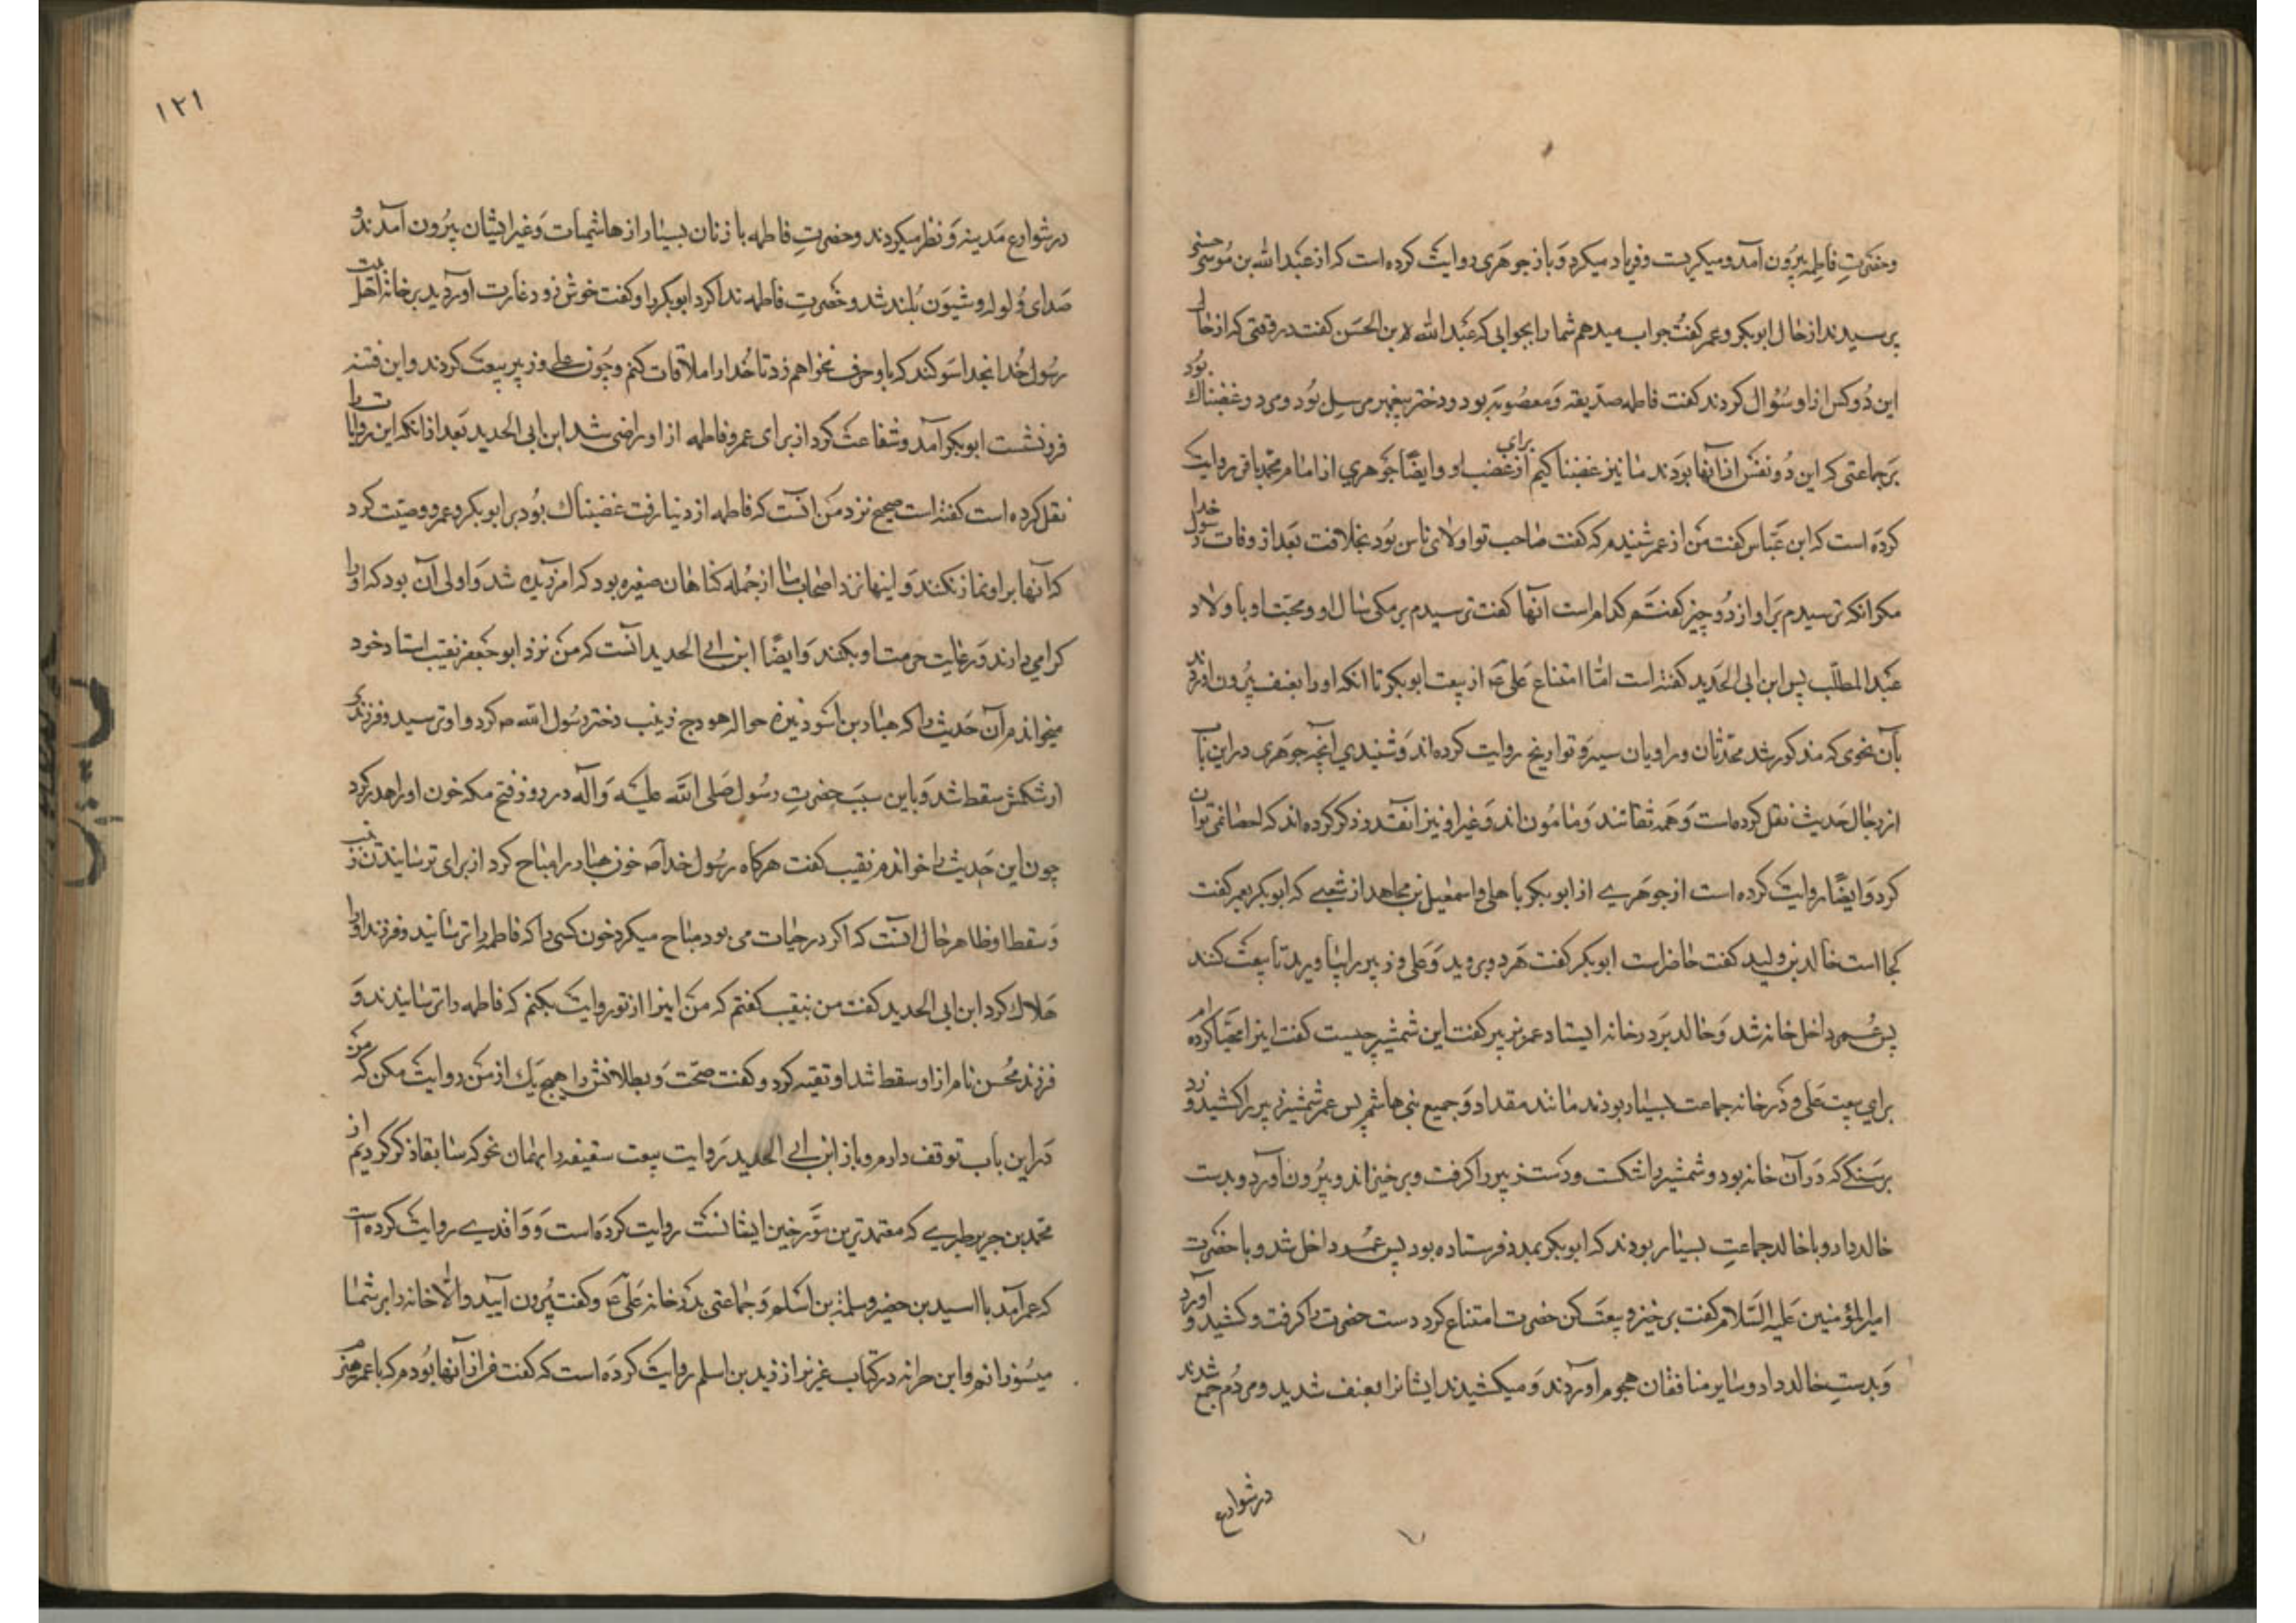 وحضرتِ فاطمه بیرون آمد و میکریست و فریاد میکرد و باز جوهری روایت کرده است که از عبدالله بن موسی حسنی
پرسیدند از حال ابوبکر و عمر کفت جواب میدهم شما را بجوابی که عبدالله بن الحسن کفت در وقتی که از حال
این دو کس از او سئوال کردند کفت فاطمه صدیقه و معصومه بود و دختر پیغمبر مرسل بود و مرد و غضبناک بود
بر جماعتی که این دو نفس از آنها بودند ما نیز غضبناکیم از برای غضب او و ایضًا جوهری از امام محمد باقر روایت
کرده است که ابن عباس کفت من از عمر شنیدم که کفت صاحب تو اولای ناس بود بخلافت بعد از وفات رسول خدا
مکر انکه ترسیدم بر او از دو چیز کفتم کدام است انها کفت ترسیدم بر مکی سال او و محبت او با ولاد
عبدالمطلب پس ابن ابی الحدید کفته است امّا امتناع علی ع از بیعت ابوبکر تا انکه او را بعنف بیرون اوردند
بآن نحوی که مذکور شد محدّثان و راویان سیر و تواریخ روایت کرده اند و شنیدی انچه جوهری در این باب
از رجال حدیث نقل کرده است و همه ثقاتند و مأمون اند و غیر او نیز انقدر ذکر کرده اند که احصا نمی توان
کرد و ایضًا روایت کرده است از جوهری از ابوبکر باهلی و اسمعیل بن مجاهد از شعبی که ابوبکر بعمر کفت
کجا است خالد بن ولید کفت حاضر است ابوبکر کفت هر دو بروید و علی و زبیر را بیاورید تا بیعت کنند
پس عمر داخل خانه شد و خالد بر در خانه ایستاد عمر بزبیر کفت این شمشیر چیست کفت اینرا مهیّا کرده ام
برای بیعت علی و در خانه جماعت بسیار بودند مانند مقداد و جمیع بنی هاشم پس عمر شمشیر زبیر را کشید و زد
بر سنکی که در آن خانه بود و شمشیر را شکست و دست زبیر را کرفت و برخیزاند و بیرون آورد و بدست
خالد داد و با خالد جماعتِ بسیار بودند که ابوبکر بمدد فرستاده بود پس عمر داخل شد و با حضرت
امیرالمؤمنین علیه السّلام کفت برخیز و بیعت کن حضرت امتناع کرد دست حضرت را کرفت و کشید و آورد
و بدستِ خالد داد و سایر منافقان هجوم اوردند و میکشیدند ایشانرا بعنف شدید و مردم جمع شدند
در شوارع
۱۲۱
در شوارع مدینه و نظر میکردند و حضرتِ فاطمه با زنان بسیار از هاشمیات و غیر ایشان بیرون آمدند و
صدای ولوله و شیون بلند شد و حضرتِ فاطمه ندا کرد ابوبکر را و کفت خوش زود غارت آوردید بر خانه اهل بیت
رسول خدا بخدا سوکند که با و حرف نخواهم زد تا خدا را ملاقات کنم و چون علی و زبیر بیعت کردند و این فتنه
فرو نشست ابوبکر آمد و شفاعت کرد از برای عمر و فاطمه از او راضی شد ابن ابی الحدید بعد از انکه این روایات را
نقل کرده است کفته است صحیح نزد من انست که فاطمه از دنیا رفت غضبناک بود بر ابوبکر و عمر و وصیّت کرد
که آنها بر او نماز نکنند و اینها نزد اصحاب ما از جمله کناهان صغیره بود که امرزیده شد و اولی آن بود که او را
کرامی دارند و رعایت حرمت او بکنند و ایضًا ابن ابی الحدید انست که من نزد ابو جعفر نقیب استاد خود
میخواندم آن حدیث را که هبّار بن اسود نیزه حواله هودج زینب دختر رسول الله ص کرد و او ترسید و فرزندی
از شکمش سقط شد و باین سبب حضرتِ رسول صلی الله علیه و آله در روز فتح مکه خون او را هدر کرد
چون این حدیث را خواندم نقیب کفت هرکاه رسول خدا ص خون هبّار را مباح کرد از برای ترسانیدن زینب
و سقط او ظاهر حال انست که اکر در حیات می بود مباح میکرد خون کسی را که فاطمه را ترسانید و فرزند او را
هلاک کرد ابن ابی الحدید کفت من بنقیب کفتم که من اینرا از تو روایت بکنم که فاطمه را ترسانیدند و
فرزند محسن نام از او سقط شد او تقیه کرد و کفت صحّت و بطلانش را هیچ یک از من روایت مکن که من
در این باب توقف دارم و باز ابن ابی الحدید روایت بیعت سقیفه را بهمان نحو که سابقا ذکر کردیم از
محمّد بن جریر طبری که معتمدترین مورّخین ایشانست روایت کرده است و واقدی روایت کرده است
که عمر آمد با اسید بن حضیر و سلمة بن اسلم و جماعتی بدر خانه علی ع و کفت بیرون آیید و الّا خانه را بر شما
میسوزانم و ابن حرانه در کتاب غرر از زید بن اسلم روایت کرده است که کفت من از آنها بودم که با عمر هیزم